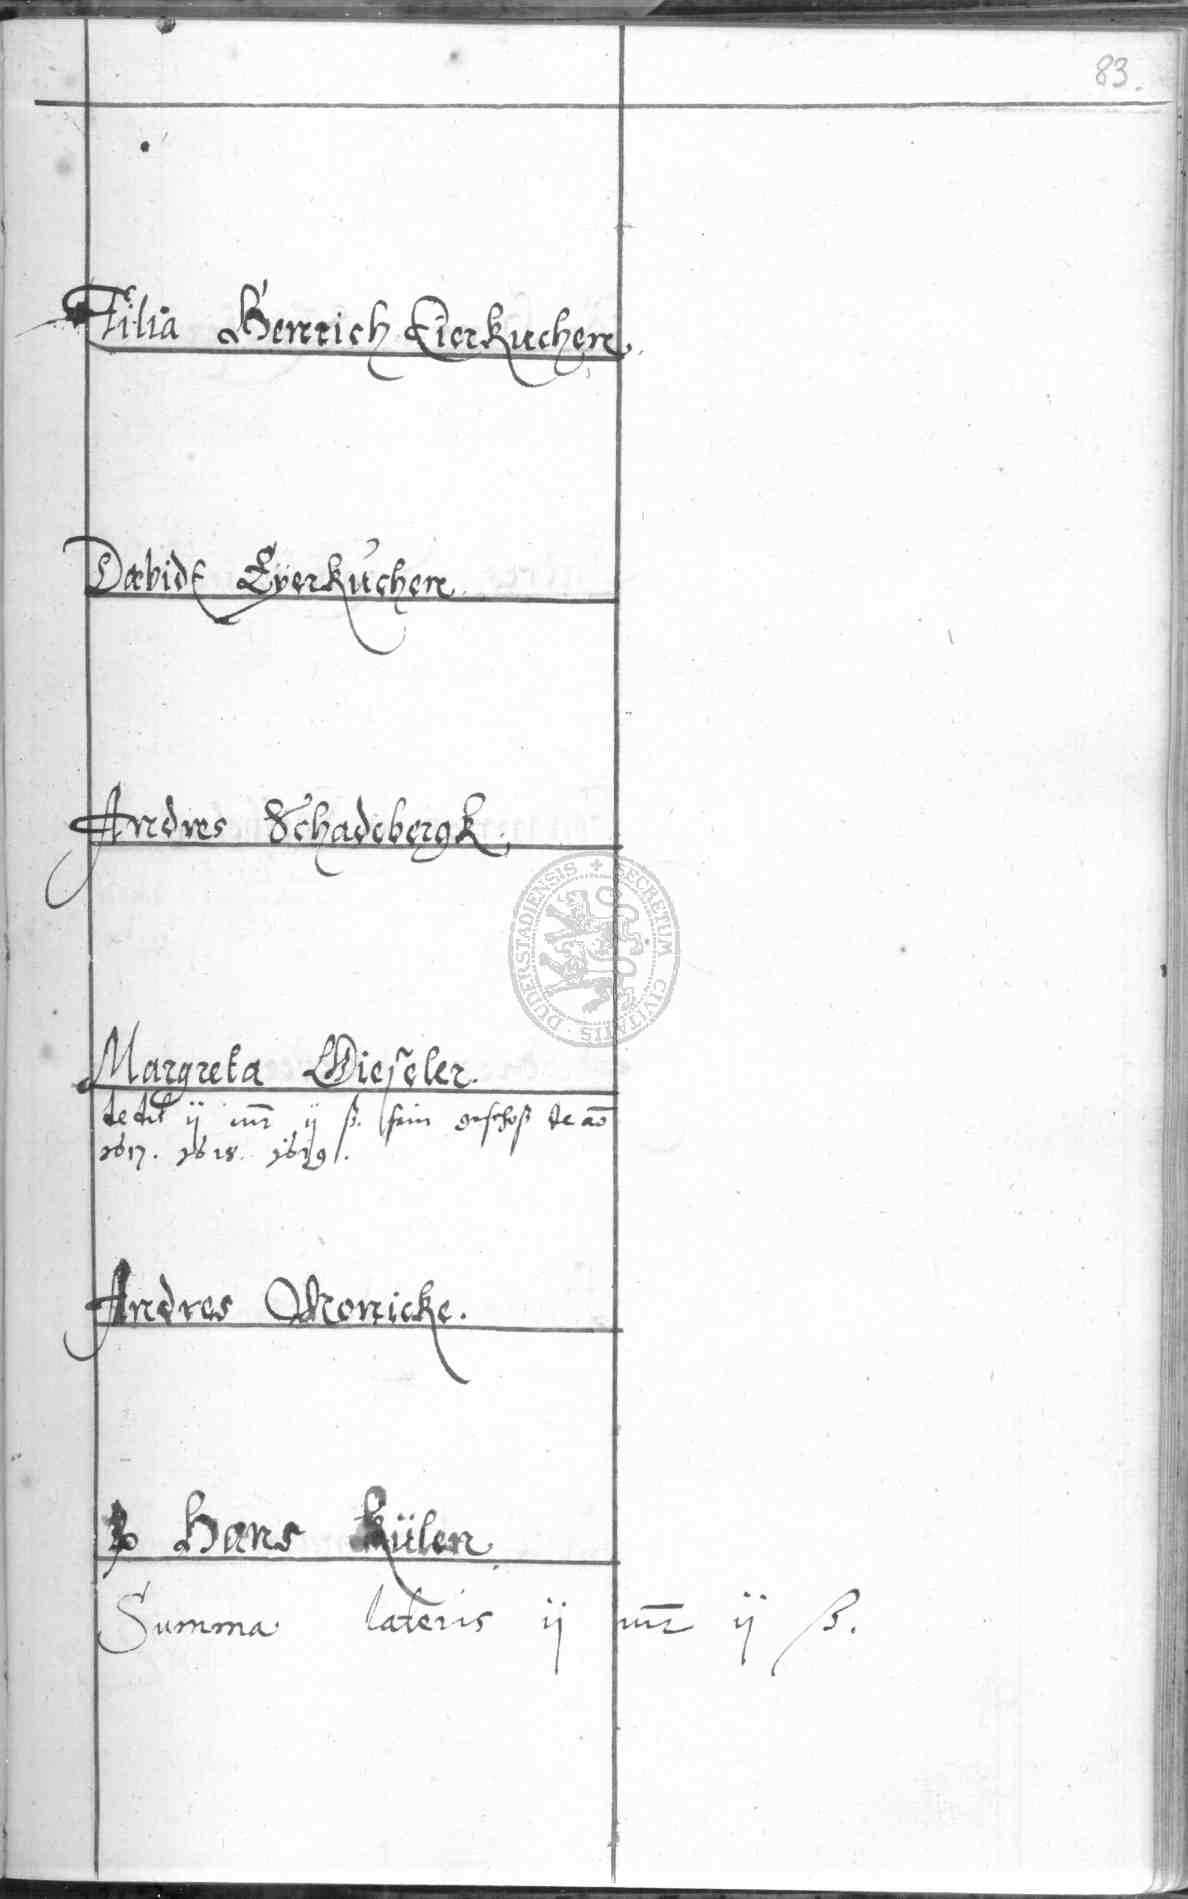 83.
Filia Henrich Eierkuchen.
Davidt Eÿerkuchen.
Andres Schadebergk.
Margreta Wieseler.
dedit ij mr ij ß. sein geschoß de ao
1617. 1618. 1619.
Andres Monicke.
Hans Külen.
Summa lateris ij mr ij ß.
DUDERSTADIENSIS + SECRETUM CIVITATIS